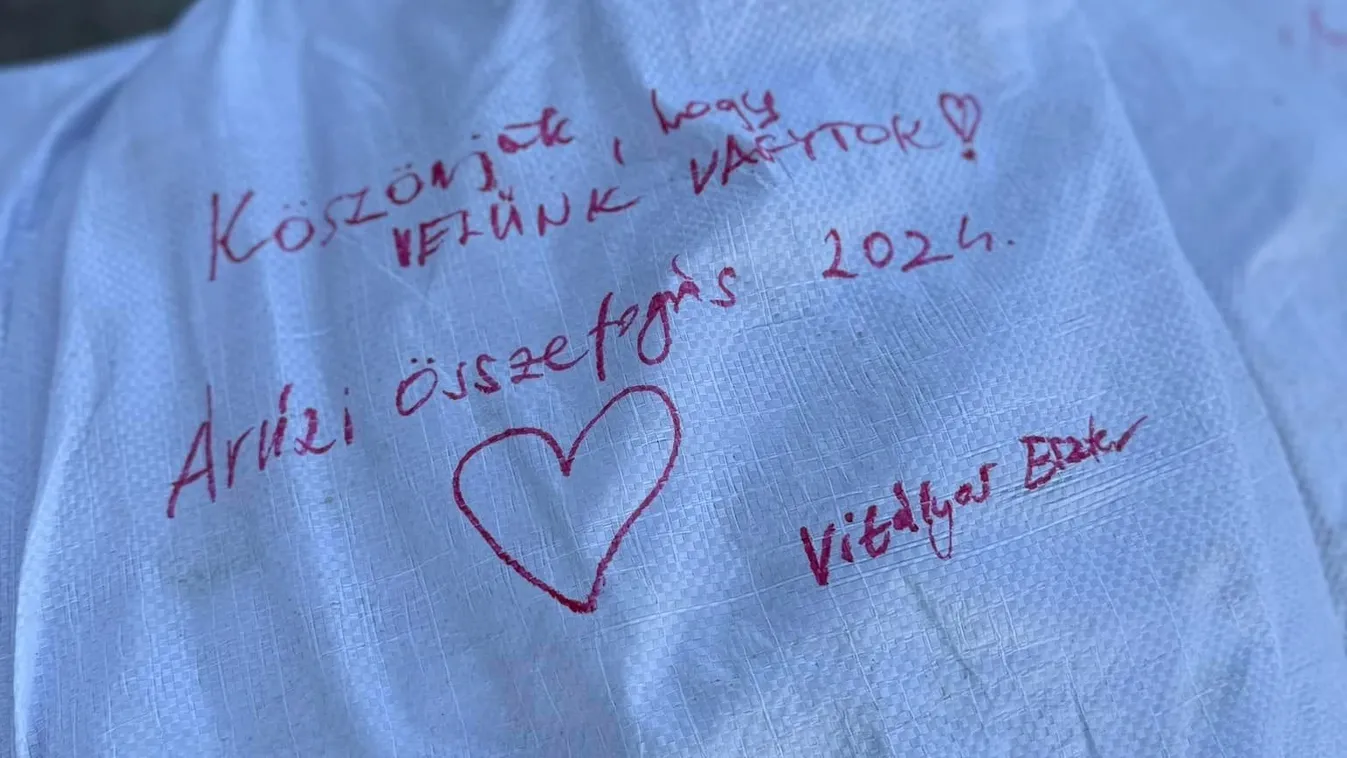 Köszönjük, hogy
VELÜNK VAGYTOK!
Árvízi összefogás 2024.
Vitályos Eszter